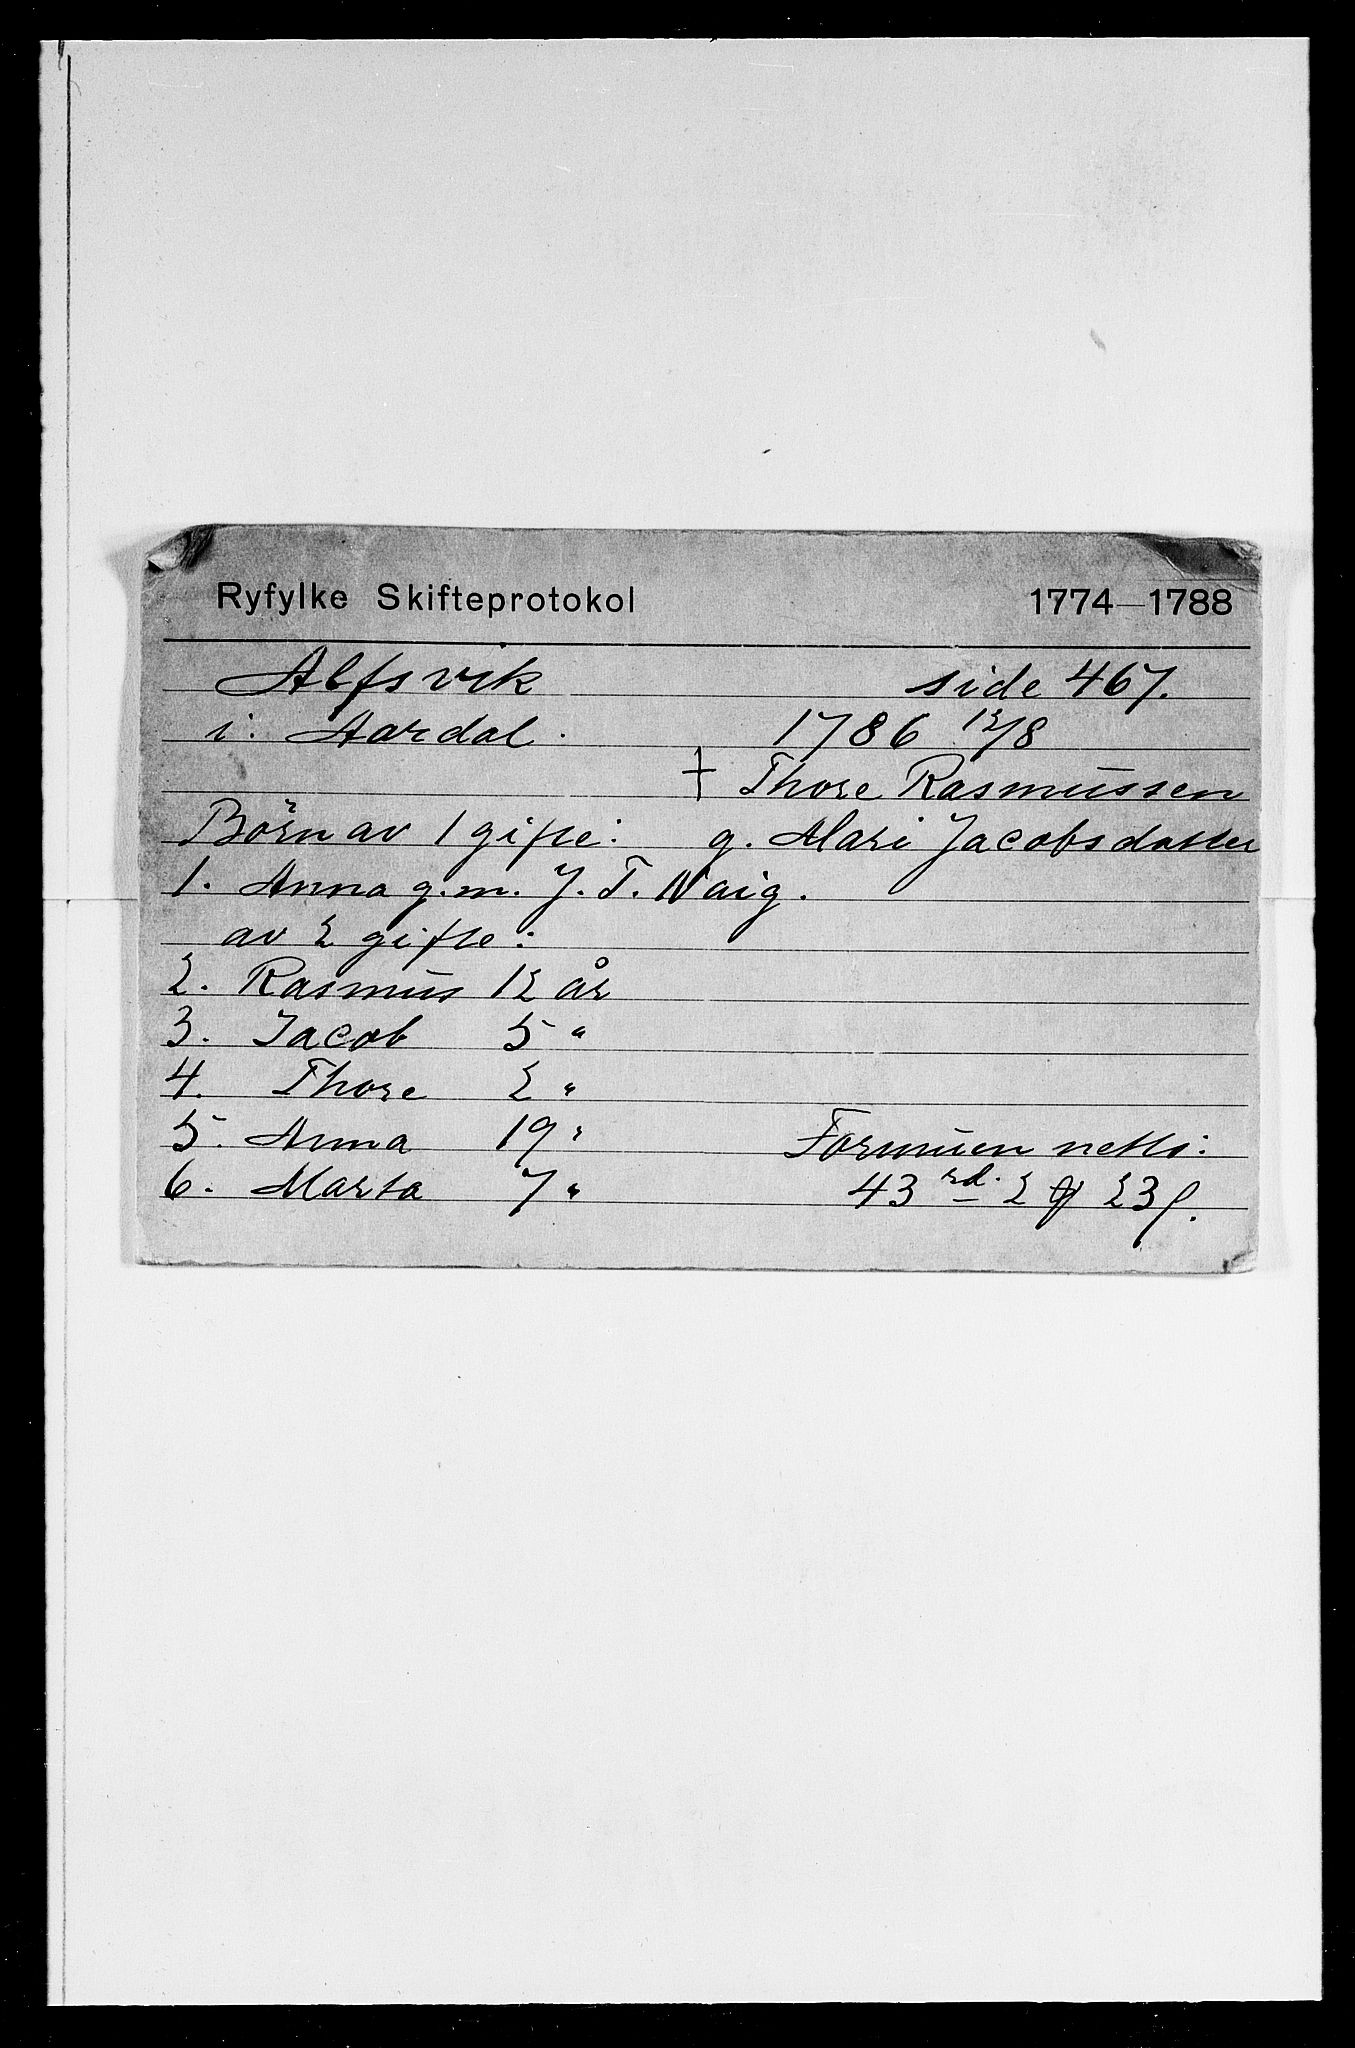 Ryfylke Skifteprotokol 1774–1788
Alfsvik side 467.
i: Aardal. 1786 12/8
† Thore Rasmussen
Börn av 1 gifte: g. Mari Jacobsdatter
1. Anna g.m. J. T. Vaig.
av 2 gifte:
2. Rasmus 12 år
3. Jacob 5 "
4. Thore 2 "
5. Anna 19 "
6. Marta 7 "
Formuen netto:
43 rd. 2 23 s.